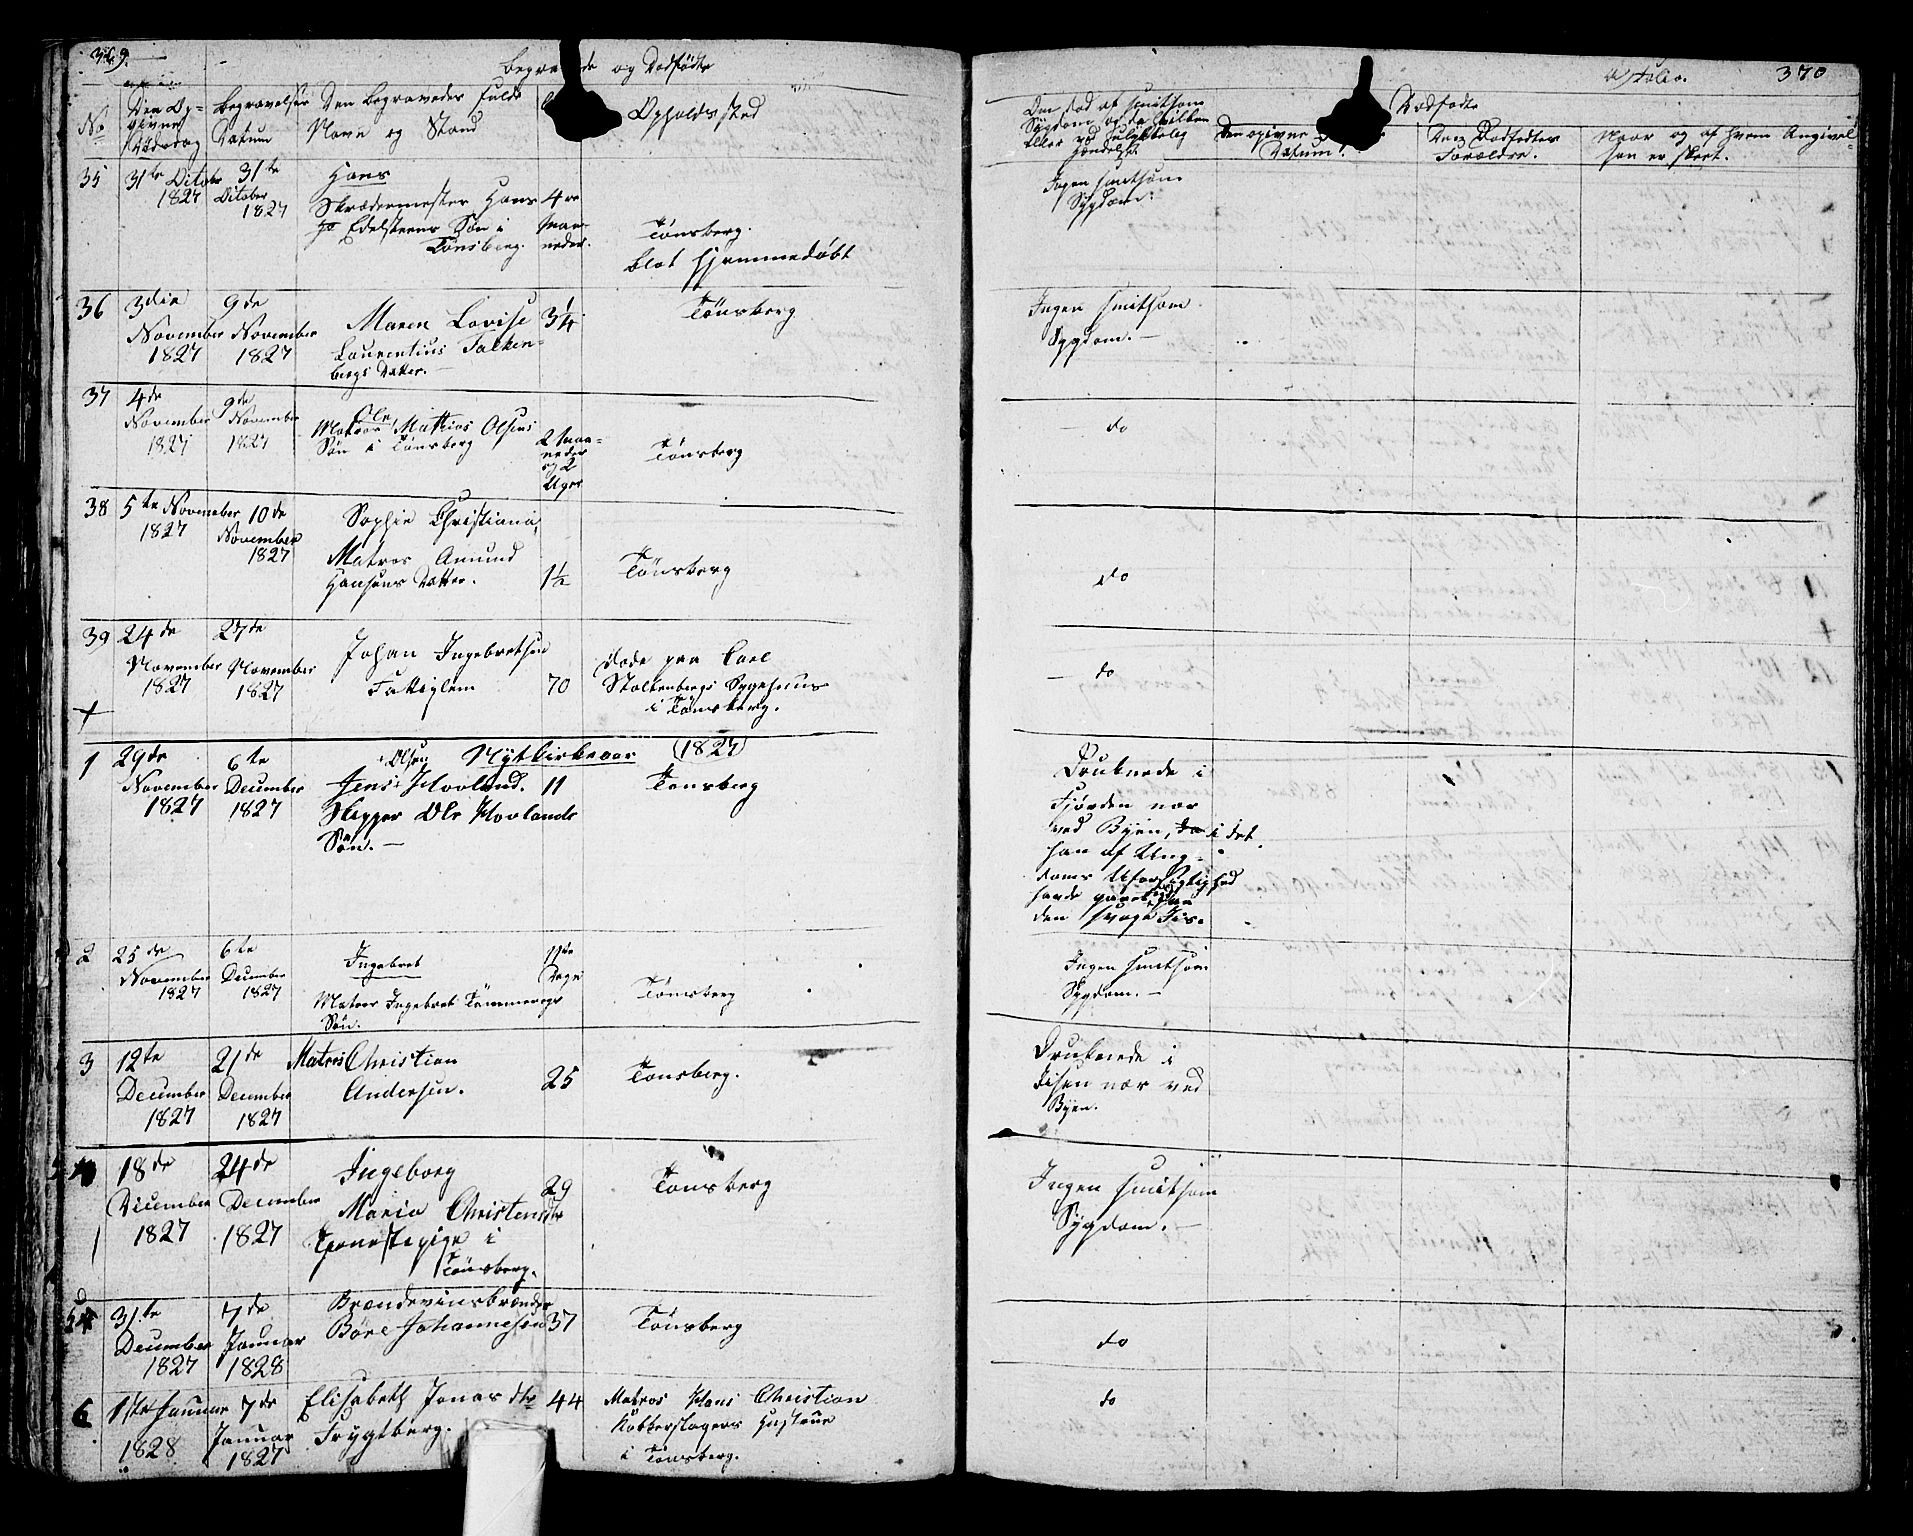 369.
Begra de og Dødfødte
No
Den Op-
givne
Dødsdag
Begravelses
Datum
Den Begravedes fulde
Navn og Stand
Opholdssted
35
31te Octobr
1827
31te
October
1827
Hans
Skrædermester Hans
Edelsteens Søn i
Tønsberg.
4re
Maa-
neder.
Tønsberg.
blot hjemmedøbt
36
3die
November
1827
9de
November
1827
Maren Lovise
Laurentius Falken-
bergs Datter.
3 1/4
Tønsberg
37
4de
November
1827
9de
November
1827
Ole
Matros Mathias Olsens
Søn i Tønsberg
2 Maa-
neder
og 2
Uger
Tønsberg
38
5te November
1827
10de
November
1827
Sophie Christiana,
Matros Amund
Hansens Datter.
1½
Tønsberg
39
24de
November
1827
27de
November
1827
Johan Ingebretsen
Fattiglem
70
døde paa Carl
Stoltenbergs Sygehuus
i Tønsberg.
+
Nytkirkeaar (1827)
1
29de
November
1827
6te
December
1827
Olsen
Jens Hovland.
Skipper Ole Hovlands
Søn.
11
Tønsberg
2
25de
November
1827
6te
December
1827
Ingebret
Matros Ingebret Tømmerogs
Søn.
Dage
Tønsberg
3
12te
December
1827
21de
December
1827
Matros Christian
Andersen.
25
Tønsberg.
18de
December
1827
24de
December
1827
Ingeborg
Maria Christensdtr
Tjenestepige i
Tønsberg.
29
Tønsberg
5
31te
December
1827
7de
Januar
1828
Brændevinsbrænder
Børe Johannesen
37
Tønsberg
6
1ste Januar
1828
7de
Januar
1827
Elisabeth Jonas dtr
Frygtberg.
44
Matros Hans Christian
Kobberslagers Hustrue
i Tønsberg.
a Folio. 370
Om død af smitsom
Sygdom og da hvilken
eller ved ulykkelig
Hændelse
Dødfødte
Den opgivne
Datum.
Den Dødfødtes
Forældre.
Naar og af hvem Angivel-
sen er skeet.
Ingen smitsom
Sygdom.
Ingen smitsom
Sygdom.
do
do
do
Druknede i
Fjorden nær
ved Byen, da i det
han af Ung-
doms Uforsigtighed
havde
den svage Iis.
Ingen smitsom
Sygdom.
Druknede i
Iisen nær ved
Byen.
Ingen smitsom
Sygdom.
do
do